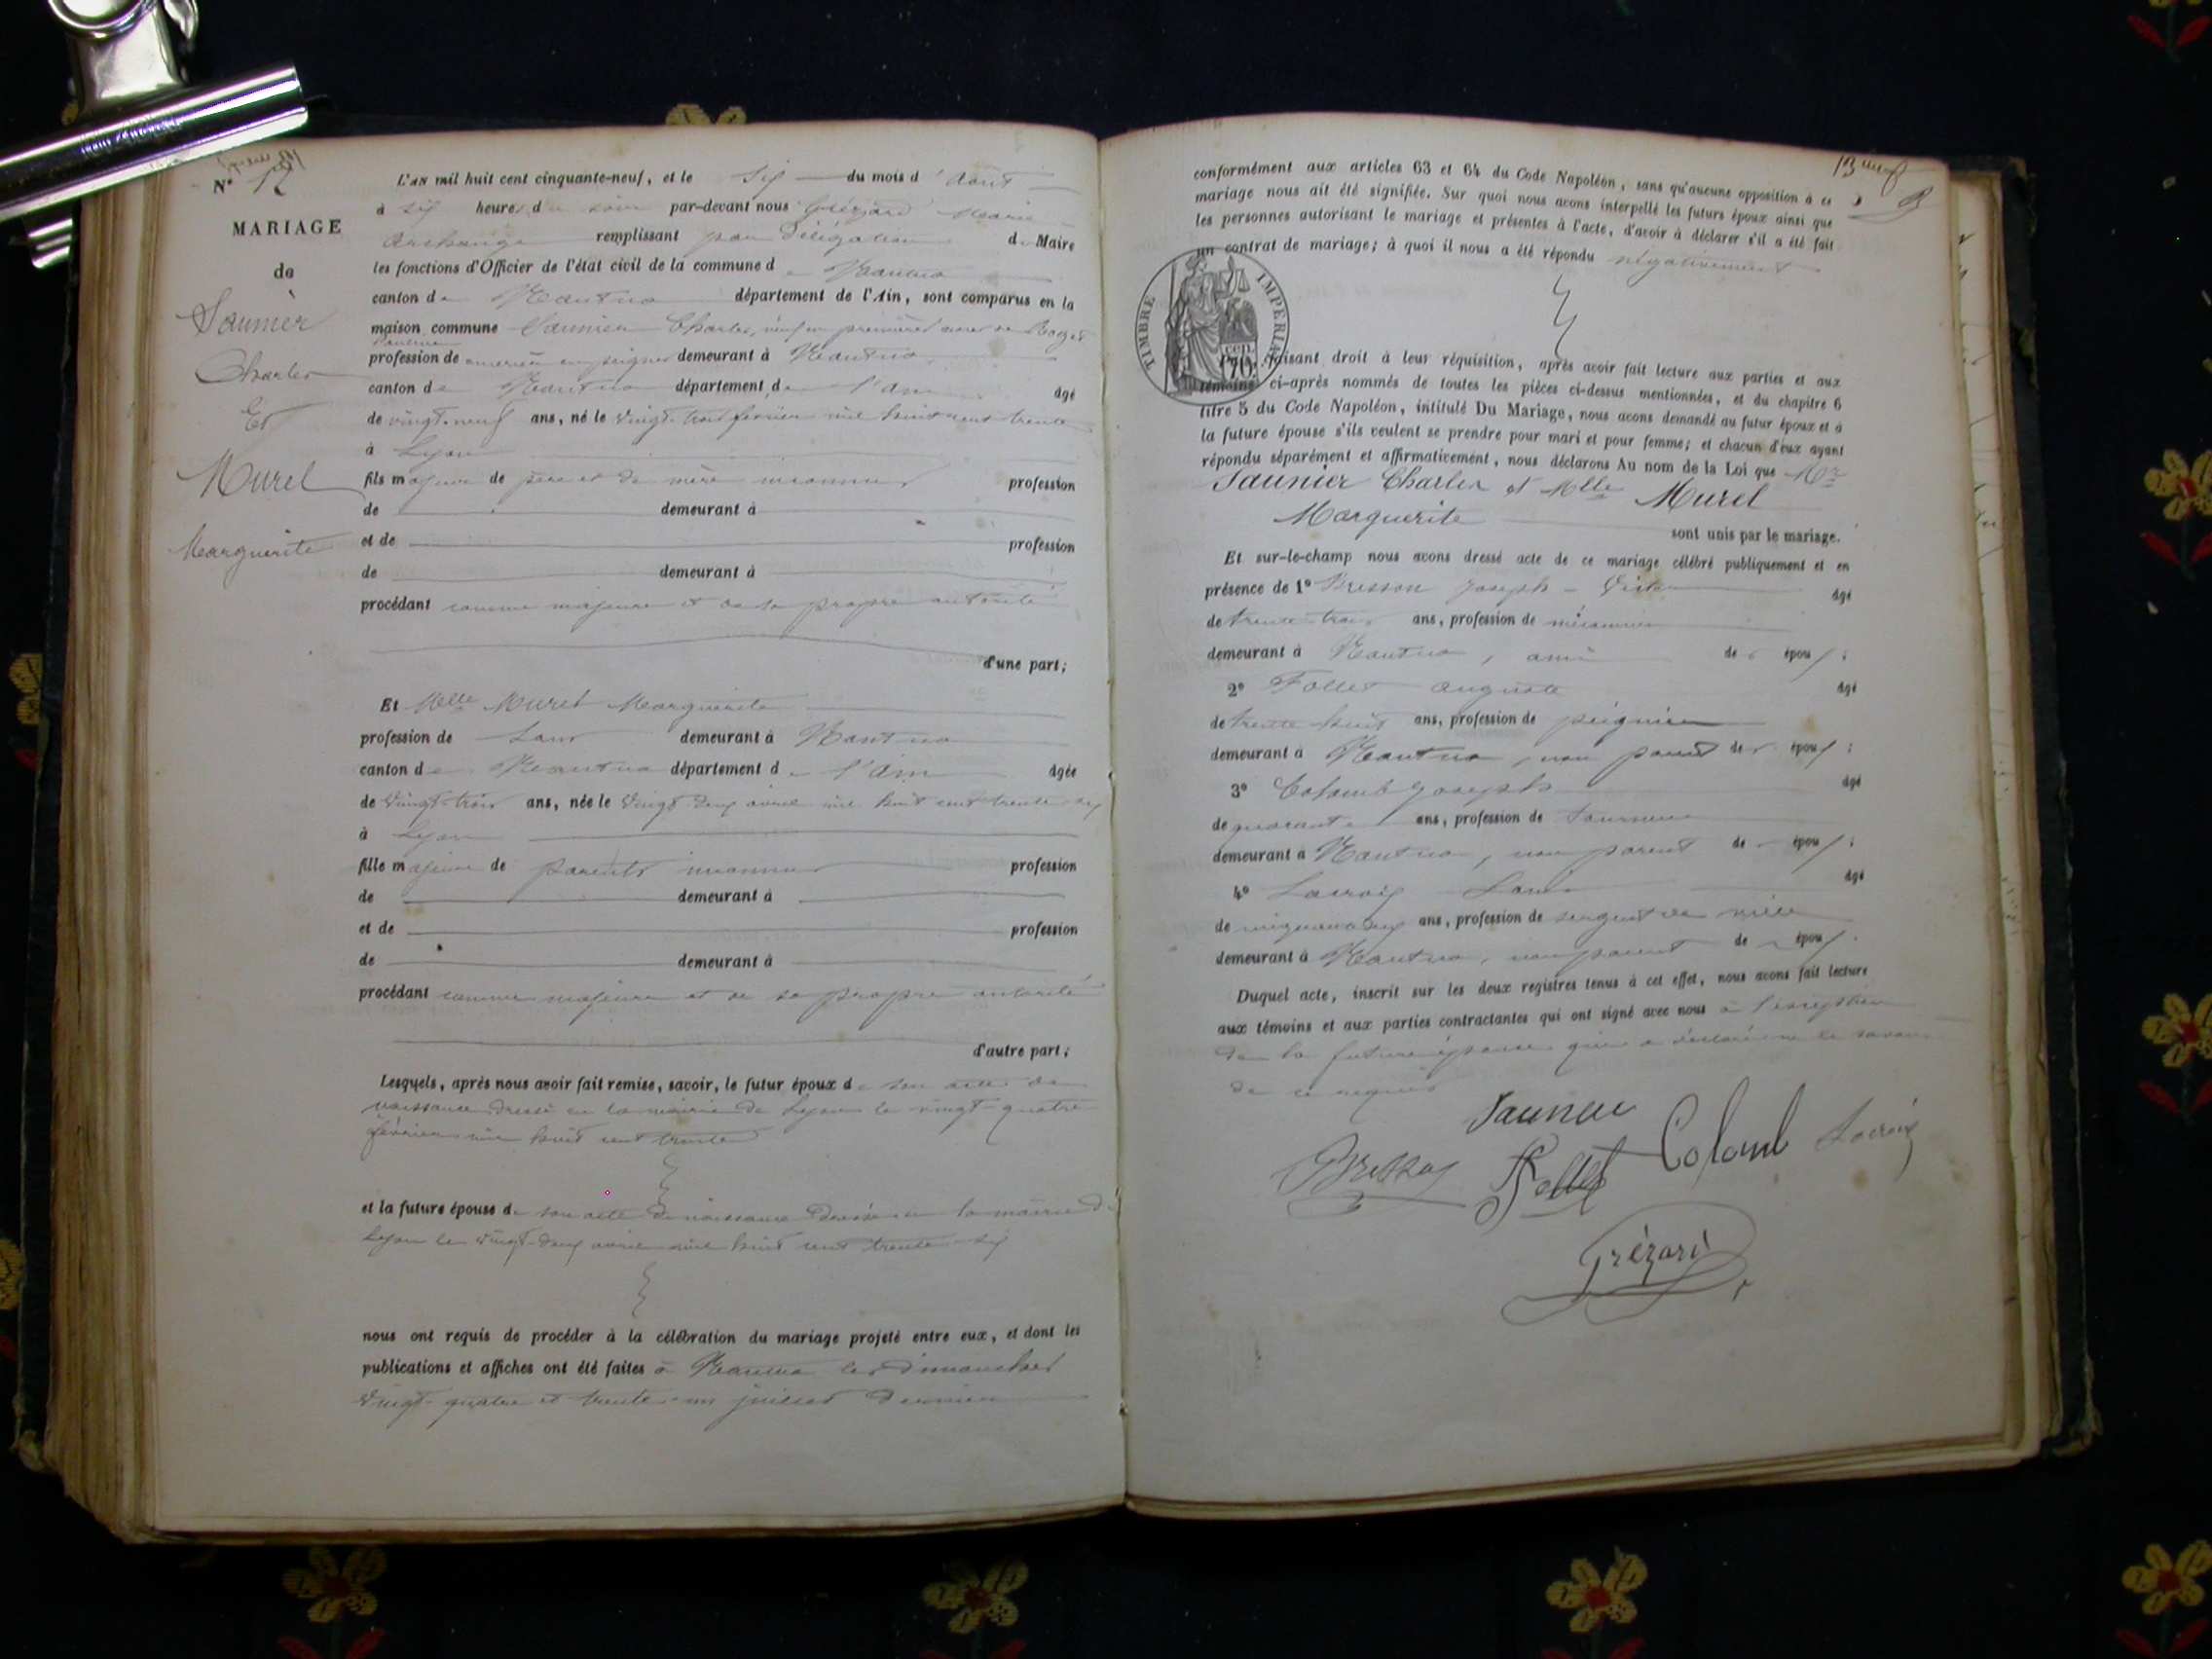 N° 12
MARIAGE
de
Saunier
Charles
Et
Murel
Marguerite
L'AN mil huit cent cinquante-neuf, et le six du mois d'août
à six heures du soir par-devant nous Grézard Marie
Archange remplissant par délégation du Maire
les fonctions d'Officier de l'état civil de la commune de Nantua
canton de Nantua département de l'Ain, sont comparus en la
maison commune Saunier Charles, veuf en premières noces de
profession de demeurant à Nantua
canton de Nantua département de l'Ain âgé
de vingt-neuf ans, né le vingt-trois février mil huit cent trente
à Lyon
fils majeur de père et de mère inconnus profession
de demeurant à
et de profession
de demeurant à
procédant comme majeur et de sa propre autorité
d'une part;
Et Melle Murel Marguerite
profession de sans demeurant à Nantua
canton de Nantua département de l'Ain âgée
de vingt-trois ans, née le vingt-deux avril mil huit cent trente six
à Lyon
fille majeure de parents inconnus profession
de demeurant à
et de profession
de demeurant à
procédant comme majeure et de sa propre autorité
d'autre part;
Lesquels, après nous avoir fait remise, savoir, le futur époux de son acte de
naissance dressé en la mairie de Lyon le vingt-quatre
février mil huit cent trente
et la future épouse de son acte de naissance dressé en la mairie de
Lyon le vingt-deux avril mil huit cent trente-six
nous ont requis de procéder à la célébration du mariage projeté entre eux, et dont les
publications et affiches ont été faites à Nantua les dimanches
vingt-quatre et trente-un juillet dernier
conformément aux articles 63 et 64 du Code Napoléon, sans qu'aucune opposition à ce
mariage nous ait été signifiée. Sur quoi nous avons interpellé les futurs époux ainsi que
les personnes autorisant le mariage et présentes à l'acte, d'avoir à déclarer s'il a été fait
un contrat de mariage; à quoi il nous a été répondu négativement
TIMBRE IMPÉRIAL
70 cen.
faisant droit à leur réquisition, après avoir fait lecture aux parties et aux
témoins ci-après nommés de toutes les pièces ci-dessus mentionnées, et du chapitre 6
titre 5 du Code Napoléon, intitulé Du Mariage, nous avons demandé au futur époux et à
la future épouse s'ils veulent se prendre pour mari et pour femme; et chacun d'eux ayant
répondu séparément et affirmativement, nous déclarons Au nom de la Loi que Mr
Saunier Charles et Melle Murel
Marguerite
sont unis par le mariage.
Et sur-le-champ nous avons dressé acte de ce mariage célébré publiquement et en
présence de 1° Bresson Joseph âgé
de trente-trois ans, profession de mécanicien
demeurant à Nantua, ami des époux;
2° Follet Auguste âgé
de trente-huit ans, profession de
demeurant à Nantua, non parent des époux;
3° Colomb Joseph âgé
de quarante ans, profession de tourneur
demeurant à Nantua, non parent des époux;
4° Lacroix Louis âgé
de cinquante-deux ans, profession de sergent de ville
demeurant à Nantua, non parent des époux.
Duquel acte, inscrit sur les deux registres tenus à cet effet, nous avons fait lecture
aux témoins et aux parties contractantes qui ont signé avec nous à l'exception
de la future épouse qui a déclaré ne le savoir
de ce requis
Saunier
Bresson Follet Colomb Lacroix
Grézard